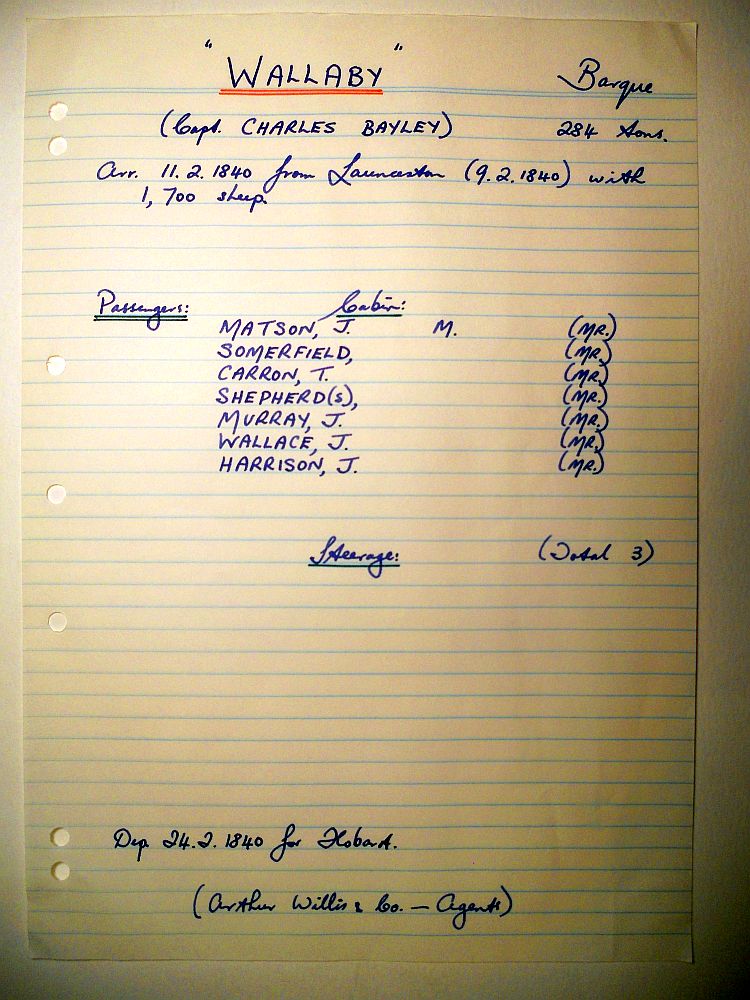 "WALLABY" Barque
(Capt. CHARLES BAYLEY) 284 tons.
Arr. 11.2.1840 from Launceston (9.2.1840) with
1,700 sheep.
Passengers: Cabin:
MATSON, J. M. (MR.)
SOMERFIELD, (MR.)
CARRON, T. (MR.)
SHEPHERD(S), (MR.)
MURRAY, J. (MR.)
WALLACE, J. (MR.)
HARRISON, J. (MR.)
Steerage: (Total 3)
Dep. 24.2.1840 for Hobart.
(Arthur Willis & Co. — Agents)